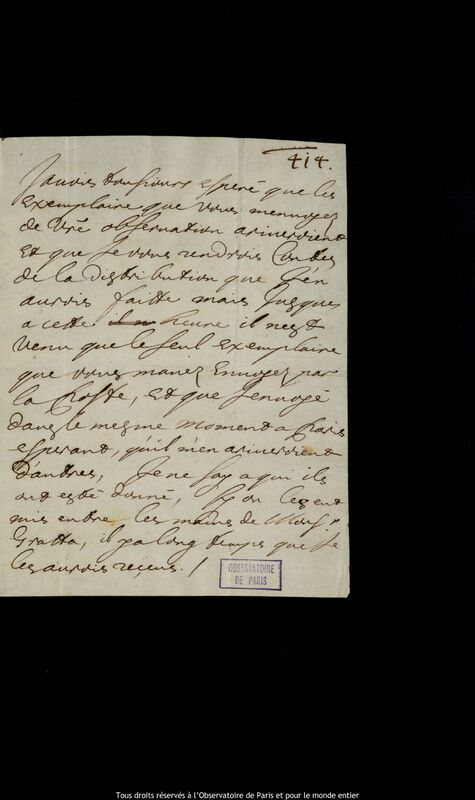 414.
Jauois tousiours esperé que les
exemplaire que vous mennvoyez
de vre observation ariveroient
Et que Je vous rendrois Contes
de la distribution que J'en
aurois faitte mais Jusques
a cette heure il nest
venu que le seul exemplaire
que vous maviez Envoyez par
la Poste, Et que J'envoyé
dans le mesme moment a Paris
esperant, quil m'en ariveroient
d'autres, Je ne say a qui ils
ont esté donné, sy on les eut
mis entre les mains de Monsr
Gratta, il y a long temps que Je
les aurois receus. /
OBSERVATOIRE
DE PARIS
Tous droits réservés à l'Observatoire de Paris et pour le monde entier